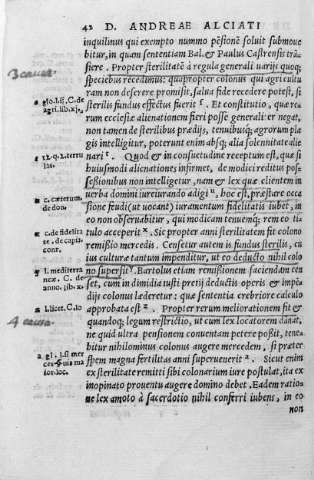 42 D. ANDREAE ALCIATI
inquilinus qui exempto nummo pẽsionẽ soluit submoue
bitur, in quam sententiam Bal. & Paulus Castrensis trã
siere. Propter sterilitatẽ à regula generali uarijs quoq;
speciebus recessimus: quapropter colonus qui agricultu
ram non deserere promisit, salua fide recedere potest, si
sterilis fundus effectus fuerit ſ. Et constitutio, quæ re
rum ecclesiæ alienationem fieri posse generali er negat,
non tamen de sterilibus prædijs, tenuibusq; agrorum pla
gis intelligitur, poterunt enim absq; alia solennitate alie
nari t. Quod & in consuetudine receptum est, quæ si
huiusmodi alienationes infirmet, de modici reditus pos-
sessionibus non intelligetur, nam & lex quæ clientem in
uerba domini iureiurando adigi u, hoc est, præstare occa
sione feudi (ut uocãt) iuramentum fidelitatis iubet, in
eo non obseruabitur, qui modicam tenuemq; rem eo ti-
tulo acceperit x. Sic propter anni sterilitatem fit colono
remissio mercedis. Censetur autem is fundus sterilis, cu
ius culturæ tantum impenditur, ut eo deducto nihil colo
no supersit y. Bartolus etiam remissionem faciendam cen
set, cum in dimidia iusti pretij deductis operis & impẽ
dijs colonus læderetur: quæ sententia crebriore calculo
approbata est z. Propter rerum meliorationem fit &
quandoq; legum restrictio, ut cum lex locatorem dãnat,
ne quid ultra pensionem conuentam petere possit, tene
bitur nihilominus colonus augere mercedem, si præter
spem magna fertilitas anni superuenerit a. Sicut enim
ex sterilitate remitti sibi colonarium iure postulat, ita ex
inopinato prouentu augere domino debet. Eadem ratio
ne lex amoto à sacerdotio nihil conferri iubens, in eo
non
3 causa
glo. l. si, C. de
agri. lib. xj.
c. cæterum.
de don.
c. de fidelita
te. de capi.
C. de
anno. lib. x.
l. licet. C. lo
4 causa
gl. l. si mer
for. loc.